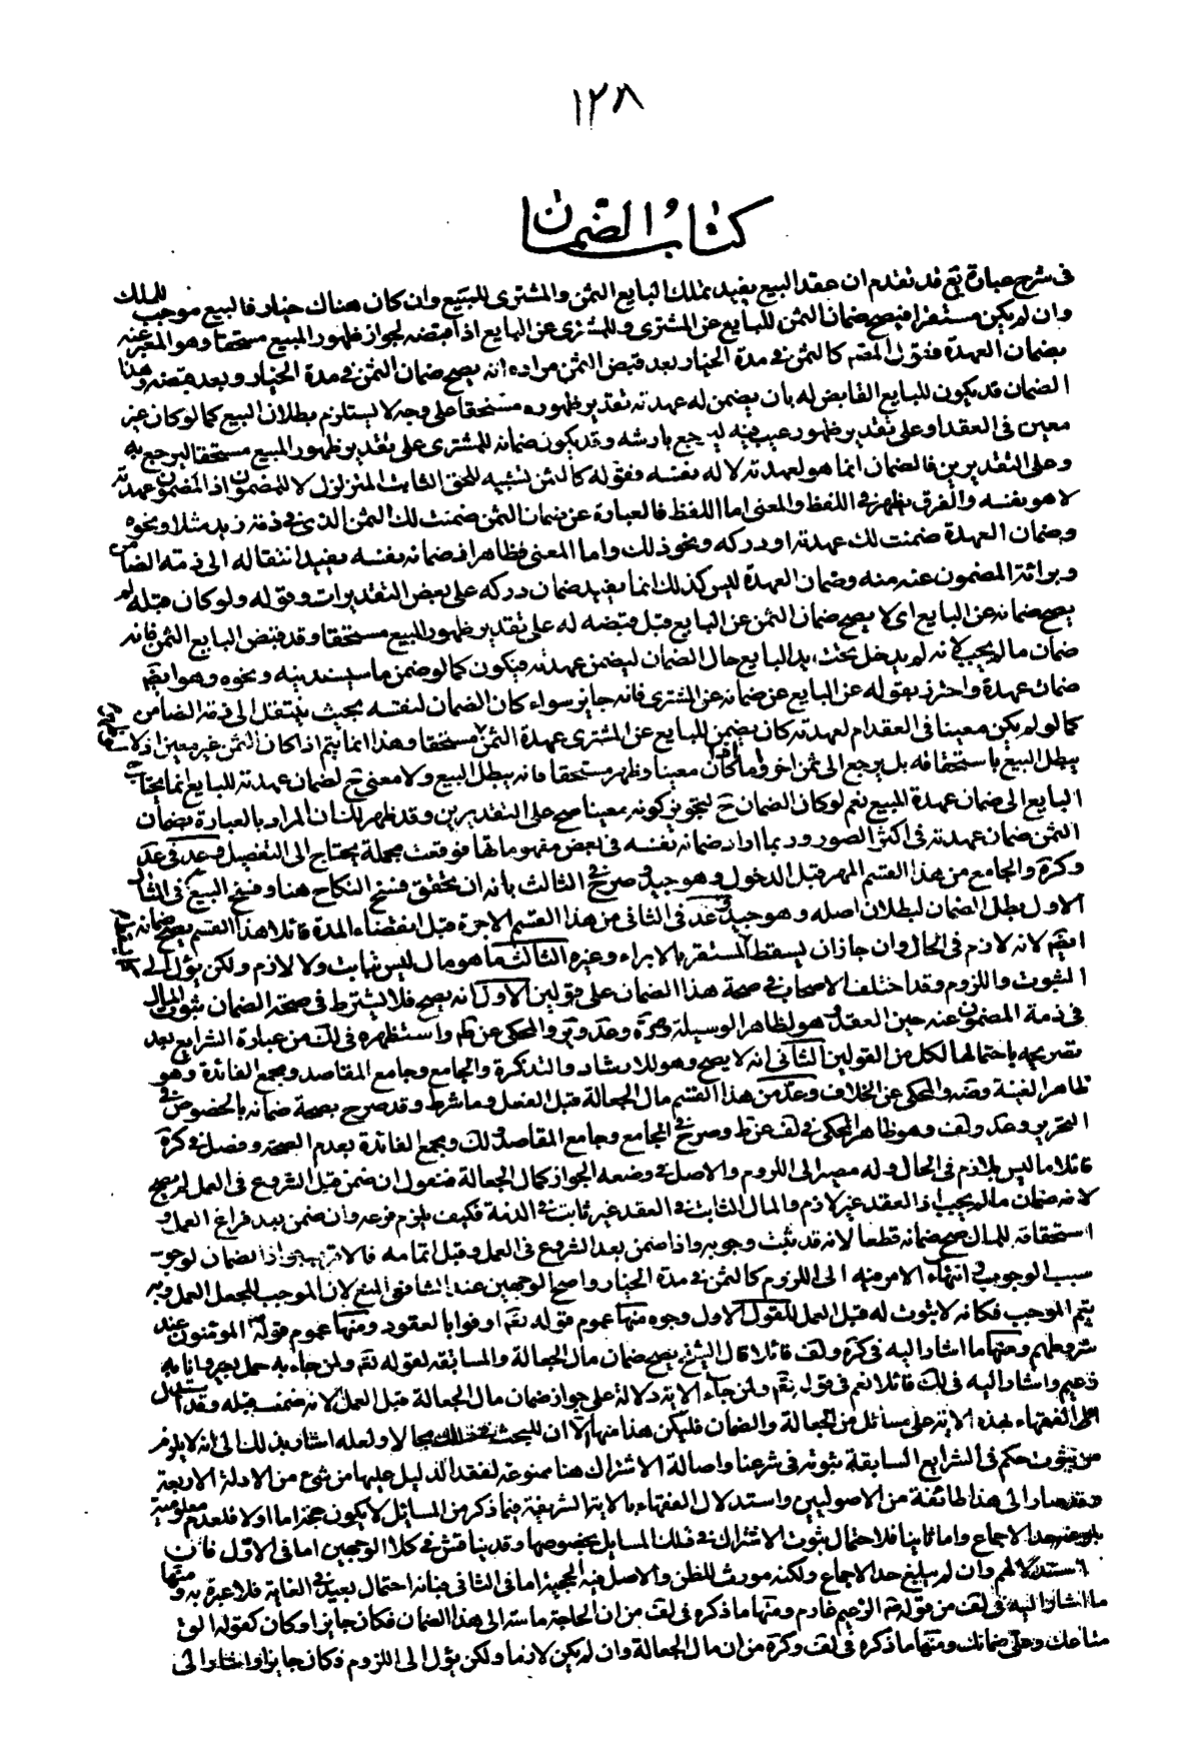 ١٢٨
كتاب الضمان
في شرح عبارة يع قد تقدم ان عقد البيع يفيد تملك البايع الثمن والمشترى المبيع وان كان هناك خيار فالبيع موجب للملك
وان لم يكن مستقرا فيصح ضمان الثمن للبايع عن المشترى وللمشترى عن البايع اذا قبضه لجواز ظهور المبيع مستحقا وهو المعبر عنه
بضمان العهدة فقول المصم كالثمن في مدة الخيار بعد قبض الثمن مراده انه يصح ضمان الثمن في مدة الخيار وبعد قبضه وهذا
الضمان قد يكون للبايع القابض له بان يضمن له عهدته تقدير ظهوره مستحقا على وجه لا يستلزم بطلان البيع كما لو كان غير
معين في العقد او على تقدير ظهور عيب فيه ليرجع بارشه وقد يكون ضمانه للمشترى على تقدير ظهور المبيع مستحقا ليرجع به
وعلى التقديرين فالضمان انما هو لعهدته لا له نفسه وفقوله كالثمن تشبيه للحق الثابت المتزلزل لا للمضمون اذ المضمون عهدته
لا هو نفسه والفرق يظهر في اللفظ والمعنى اما اللفظ فالعبارة عن ضمان الثمن ضمنت لك الثمن الذى في ذمة زيد مثلا ونحوه
وضمان العهدة ضمنت لك عهدته او دركه ونحو ذلك واما المعنى فظاهر اذ ضمانه نفسه يفيد انتقاله الى ذمة الضامن
وبرائة المضمون عنه منه وضمان العهدة ليس كذلك انما يفيد ضمان دركه على بعض التقديرات وقوله ولو كان قبله لم
يصح ضمانه عن البايع اى لا يصح ضمان الثمن عن البايع قبل قبضه له على تقدير ظهور المبيع مستحقا وقد قبض البايع الثمن فانه
ضمان ما لم يجب لانه لم يدخل تحت يد البايع حال الضمان ليضمن عهدته فيكون كما لو ضمن ما سيستدينه ونحوه وهو ايضم
ضمان عهدة واحترز بقوله عن البايع عن ضمانه عن المشترى فانه جايز سواء كان الضمان لنفسه بحيث ينتقل الى ذمة الضامن
كما لو لم يكن معينا في العقد ام لعهدته كان يضمن للبايع عن المشترى عهدة الثمن لو ظهر مستحقا وهذا انما يتم اذا كان الثمن غير معين اذ لا
يبطل البيع باستحقاقه بل يرجع الى ثمن اخر واما اذا كان معينا وظهر مستحقا فانه يبطل البيع ولا معنى ح لضمان عهدته للبايع انما يحتاج
البايع الى ضمان عهدة المبيع نعم لو كان الضمان ح لتجويز كونه معينا صح على التقديرين وقد ظهر لك ان المراد بالعبارة بضمان
الثمن ضمان عهدته في اكثر الصور وربما اراد ضمانه نفسه في بعض مفهوماتها فوقعت مجملة يحتاج الى التفصيل وعد في عد
وكرة والجامع من هذا القسم المهر قبل الدخول وهو جيد وصرح في الثالث بانه ان يتحقق فسخ النكاح هنا وفسخ البيع في الثا
الاول بطل الضمان لبطلان اصله وهو جيد وعد في الثانى من هذا القسم الاجرة قبل انقضاء المدة قائلا هذا القسم يصح ضمانه
ايضم لانه لازم في الحال وان جاز ان يسقط المستقر بالابراء وغيره الثالث ما هو مال ليس بثابت ولا لازم ولكن يؤل الى
الثبوت واللزوم وقد اختلف الاصحاب في صحة هذا الضمان على قولين الاول انه يصح فلا يشترط في صحة الضمان ثبوت المال
في ذمة المضمون عنه حين العقد وهو لظاهر الوسيلة وكرة وعد وير والمحكى عن ط واستظهره في لك من عبارة الشرايع بعد
تصريحه باحتمالها لكل من القولين الثانى انه لا يصح وهو للارشاد والتذكرة والجامع وجامع المقاصد ومجمع الفائدة وهو
ظاهر الغنية وقضه والمحكى عن الخلاف وعد من هذا القسم مال الجعالة قبل الفعل وما شرط وقد صرح بصحة ضمانه بالخصوص في
التحرير وعد ولف وهو ظاهر المحكى في لف عن ط وصرح في الجامع وجامع المقاصد ولك ومجمع الفائدة بعدم الصحة وفصل في كرة
قائلا ما ليس بلازم في الحال وله مصير الى اللزوم والاصل في وضعه الجواز كمال الجعالة فنقول ان ضمن قبل الشروع في العمل لم يصح
لانه ضمان ما لم يجب اذ العقد غير لازم والمال الثابت في العقد غير ثابت في الذمة فكيف يلزم فرعه وان ضمن بعد فراغ العمل و
استحقاقه للمال صح ضمانه قطعا لانه قد ثبت وجوبه واذا ضمن بعد الشروع في العمل وقبل اتمامه فالاقرب جواز الضمان لوجود
سبب الوجوب وانتهاء الامر فيه الى اللزوم كالثمن في مدة الخيار واصح الوجهين عند الشافعى المنع لان الموجب للجعل العمل وبه
يتم الموجب فكانه لا ثبوت له قبل العمل للقول الاول وجوه منها عموم قوله تعم اوفوا بالعقود ومنها عموم قولهم المؤمنون عند
شروطهم ومنها ما اشار اليه في كرة ولف قائلا قال الشيخ يصح ضمان مال الجعالة والمسابقة لقوله تعم ولمن جاء به حمل بعير وانا به
زعيم واشار اليه في لك قائلا نعم في قوله تعم ولمن جاء الاية دلالة على جواز ضمان مال الجعالة قبل العمل لانه ضمنه قبله وقد استدل
الفقهاء بهذه الاية على مسائل من الجعالة والضمان فليكن هذا منها الا ان للبحث في ذلك مجالا ولعله اشار بذلك الى انه لا يلزم
من ثبوت حكم في الشرايع السابقة ثبوته في شرعنا واصالة الاشتراك هنا ممنوعة لفقد الدليل عليها من شئ من الادلة الاربعة
وقد صار الى هذا طائفة من الاصوليين واستدلال الفقهاء بالاية الشريفة فيما ذكر من المسائل لا يكون حجة اما اولا فلعدم معلومية
بلوغه حد الاجماع واما ثانيا فلاحتمال ثبوت الاشتراك في تلك المسائل بخصوصها وقد يناقش في كلا الوجهين اما في الاول فان
استدلالهم وان لم يبلغ حد الاجماع ولكنه مورث للظن والاصل فيه الحجية اما في الثانى فبانه احتمال بعيد في الغاية فلا عبرة به ومنها
ما اشار اليه في لف من قوله ص الزعيم غارم ومنها ما ذكره في لف من ان الحاجة ماسة الى هذا الضمان فكان جايزا وكان كقوله الق
متاعك وعلى ضمانك ومنها ما ذكره في لف وكرة من ان مال الجعالة وان لم يكن لازما ولكن يؤل الى اللزوم فكان جايزا واشار الى